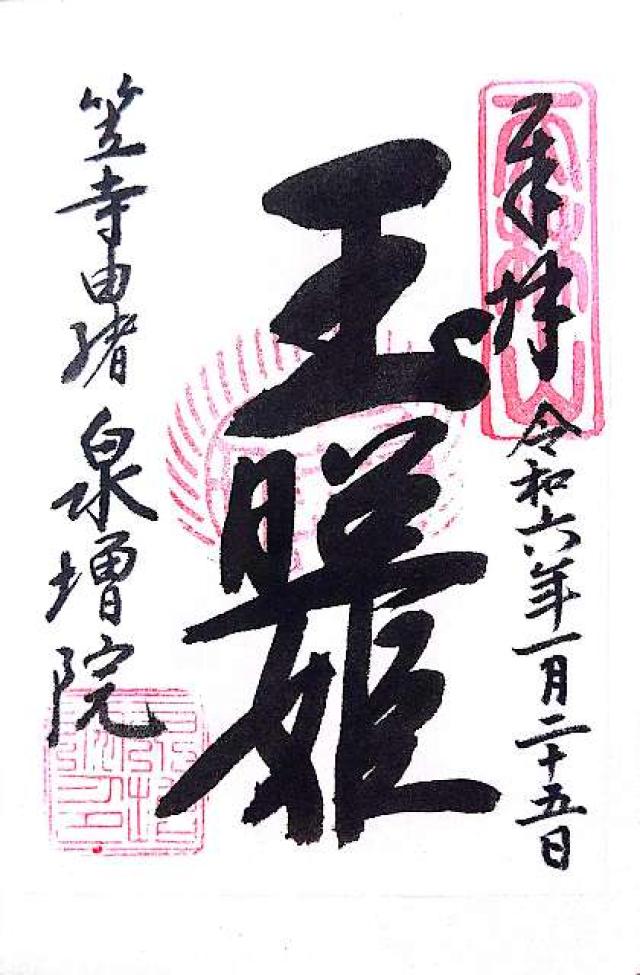 奉拝
天林山
令和六年一月二十五日
玉照姫
笠寺由緒 泉増院